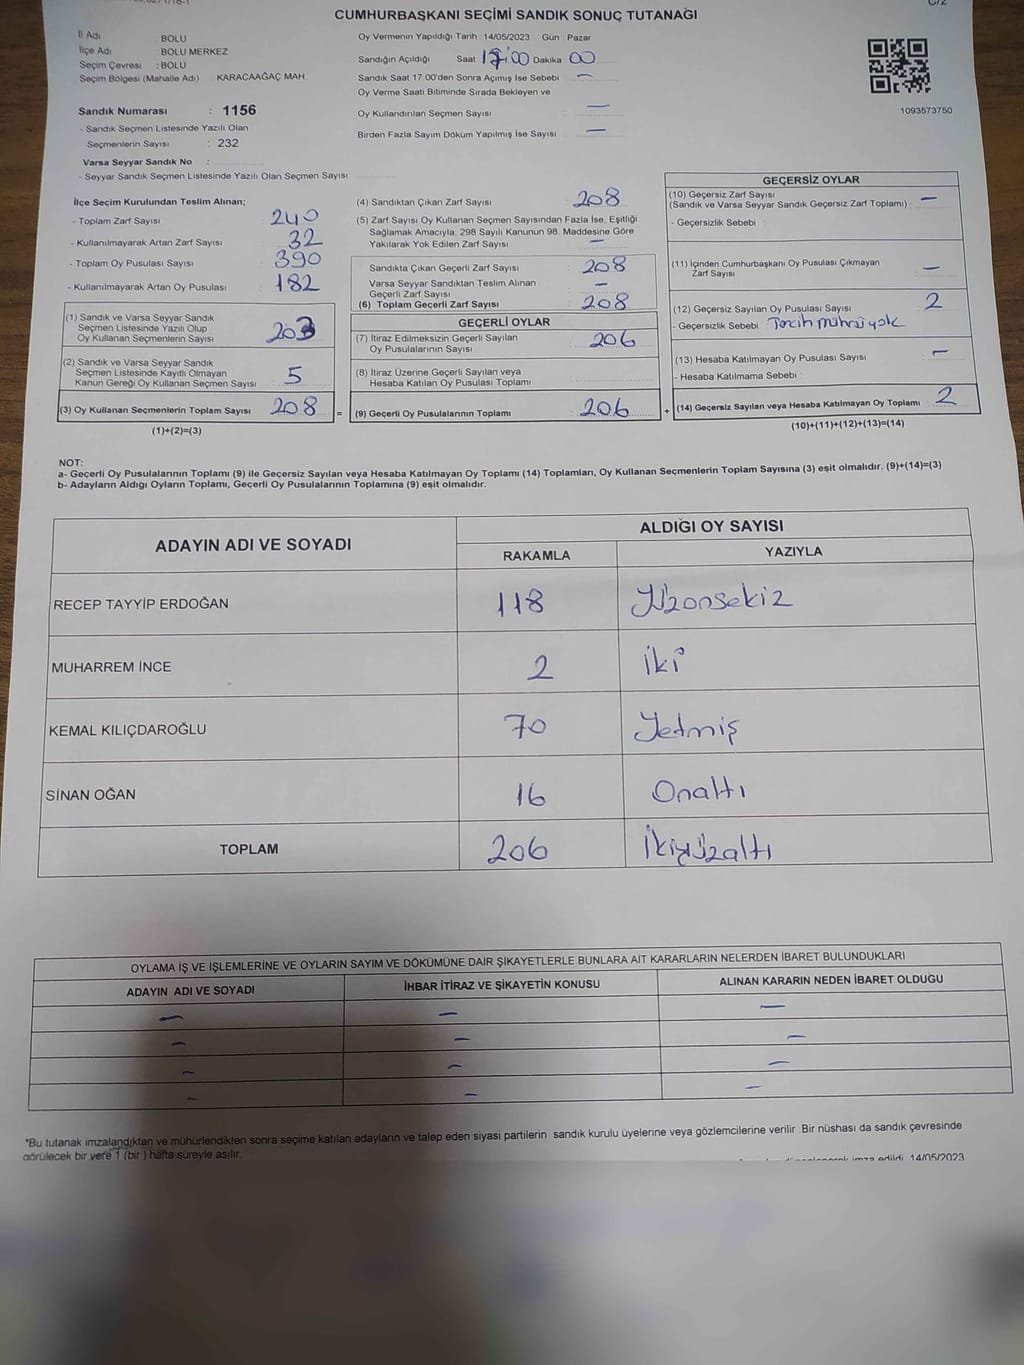 CUMHURBAŞKANI SEÇİMİ SANDIK SONUÇ TUTANAĞI
C/2
İl Adı BOLU
İlçe Adı BOLU MERKEZ
Seçim Çevresi : BOLU
Seçim Bölgesi (Mahalle Adı) KARACAAĞAÇ MAH.
Sandık Numarası : 1156
- Sandık Seçmen Listesinde Yazılı Olan
Seçmenlerin Sayısı : 232
Varsa Seyyar Sandık No :
- Seyyar Sandık Seçmen Listesinde Yazılı Olan Seçmen Sayısı
Oy Vermenin Yapıldığı Tarih : 14/05/2023 Gün : Pazar
Sandığın Açıldığı Saat 17:00 Dakika 00
Sandık Saat 17:00'den Sonra Açımış İse Sebebi : —
Oy Verme Saati Bitiminde Sırada Bekleyen ve
Oy Kullandırılan Seçmen Sayısı : —
Birden Fazla Sayım Döküm Yapılmış İse Sayısı : —
1093573750
İlçe Seçim Kurulundan Teslim Alınan;
- Toplam Zarf Sayısı : 240
- Kullanılmayarak Artan Zarf Sayısı : 32
- Toplam Oy Pusulası Sayısı : 390
- Kullanılmayarak Artan Oy Pusulası : 182
(1) Sandık ve Varsa Seyyar Sandık
Seçmen Listesinde Yazılı Olup
Oy Kullanan Seçmenlerin Sayısı 203
(2) Sandık ve Varsa Seyyar Sandık
Seçmen Listesinde Kayıtlı Olmayan
Kanun Gereği Oy Kullanan Seçmen Sayısı 5
(3) Oy Kullanan Seçmenlerin Toplam Sayısı 208 =
(1)+(2)=(3)
(4) Sandıktan Çıkan Zarf Sayısı 208
(5) Zarf Sayısı Oy Kullanan Seçmen Sayısından Fazla İse, Eşitliği
Sağlamak Amacıyla, 298 Sayılı Kanunun 98. Maddesine Göre
Yakılarak Yok Edilen Zarf Sayısı : —
Sandıkta Çıkan Geçerli Zarf Sayısı : 208
Varsa Seyyar Sandıktan Teslim Alınan
Geçerli Zarf Sayısı : —
(6) Toplam Geçerli Zarf Sayısı : 208
GEÇERLİ OYLAR
(7) İtiraz Edilmeksizin Geçerli Sayılan
Oy Pusulalarının Sayısı 206
(8) İtiraz Üzerine Geçerli Sayılan veya
Hesaba Katılan Oy Pusulası Toplamı
(9) Geçerli Oy Pusulalarının Toplamı 206 +
GEÇERSİZ OYLAR
(10) Geçersiz Zarf Sayısı
(Sandık ve Varsa Seyyar Sandık Geçersiz Zarf Toplamı) : —
- Geçersizlik Sebebi :
(11) İçinden Cumhurbaşkanı Oy Pusulası Çıkmayan
Zarf Sayısı —
(12) Geçersiz Sayılan Oy Pusulası Sayısı : 2
- Geçersizlik Sebebi Tercih mührü yok
(13) Hesaba Katılmayan Oy Pusulası Sayısı : —
- Hesaba Katılmama Sebebi :
(14) Geçersiz Sayılan veya Hesaba Katılmayan Oy Toplamı : 2
(10)+(11)+(12)+(13)=(14)
NOT:
a- Geçerli Oy Pusulalarının Toplamı (9) ile Geçersiz Sayılan veya Hesaba Katılmayan Oy Toplamı (14) Toplamları, Oy Kullanan Seçmenlerin Toplam Sayısına (3) eşit olmalıdır. (9)+(14)=(3)
b- Adayların Aldığı Oyların Toplamı, Geçerli Oy Pusulalarının Toplamına (9) eşit olmalıdır.
ADAYIN ADI VE SOYADI
ALDIĞI OY SAYISI
RAKAMLA YAZIYLA
RECEP TAYYİP ERDOĞAN 118 Yüzonsekiz
MUHARREM İNCE 2 İki
KEMAL KILIÇDAROĞLU 70 Yetmiş
SİNAN OĞAN 16 Onaltı
TOPLAM 206 İkiyüzaltı
OYLAMA İŞ VE İŞLEMLERİNE VE OYLARIN SAYIM VE DÖKÜMÜNE DAİR ŞİKAYETLERLE BUNLARA AİT KARARLARIN NELERDEN İBARET BULUNDUKLARI
ADAYIN ADI VE SOYADI İHBAR İTİRAZ VE ŞİKAYETİN KONUSU ALINAN KARARIN NEDEN İBARET OLDUĞU
— — —
— — —
— — —
— — —
*Bu tutanak imzalandıktan ve mühürlendikten sonra seçime katılan adayların ve talep eden siyasi partilerin sandık kurulu üyelerine veya gözlemcilerine verilir. Bir nüshası da sandık çevresinde
görülecek bir yere 1 (bir) hafta süreyle asılır.
imza edildi. 14/05/2023